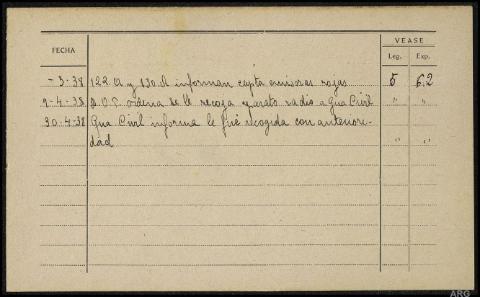 VEASE
FECHA Leg. Exp.
-3-38 122 A y 130 A informan capta emisoras rojas 5 62
9-4-38 D.O.P. ordena se le recoja aparato radio a Gua Civil " "
30-4-38 Gua Civil informa le fué recogida con anteriori-
dad " "
ARG